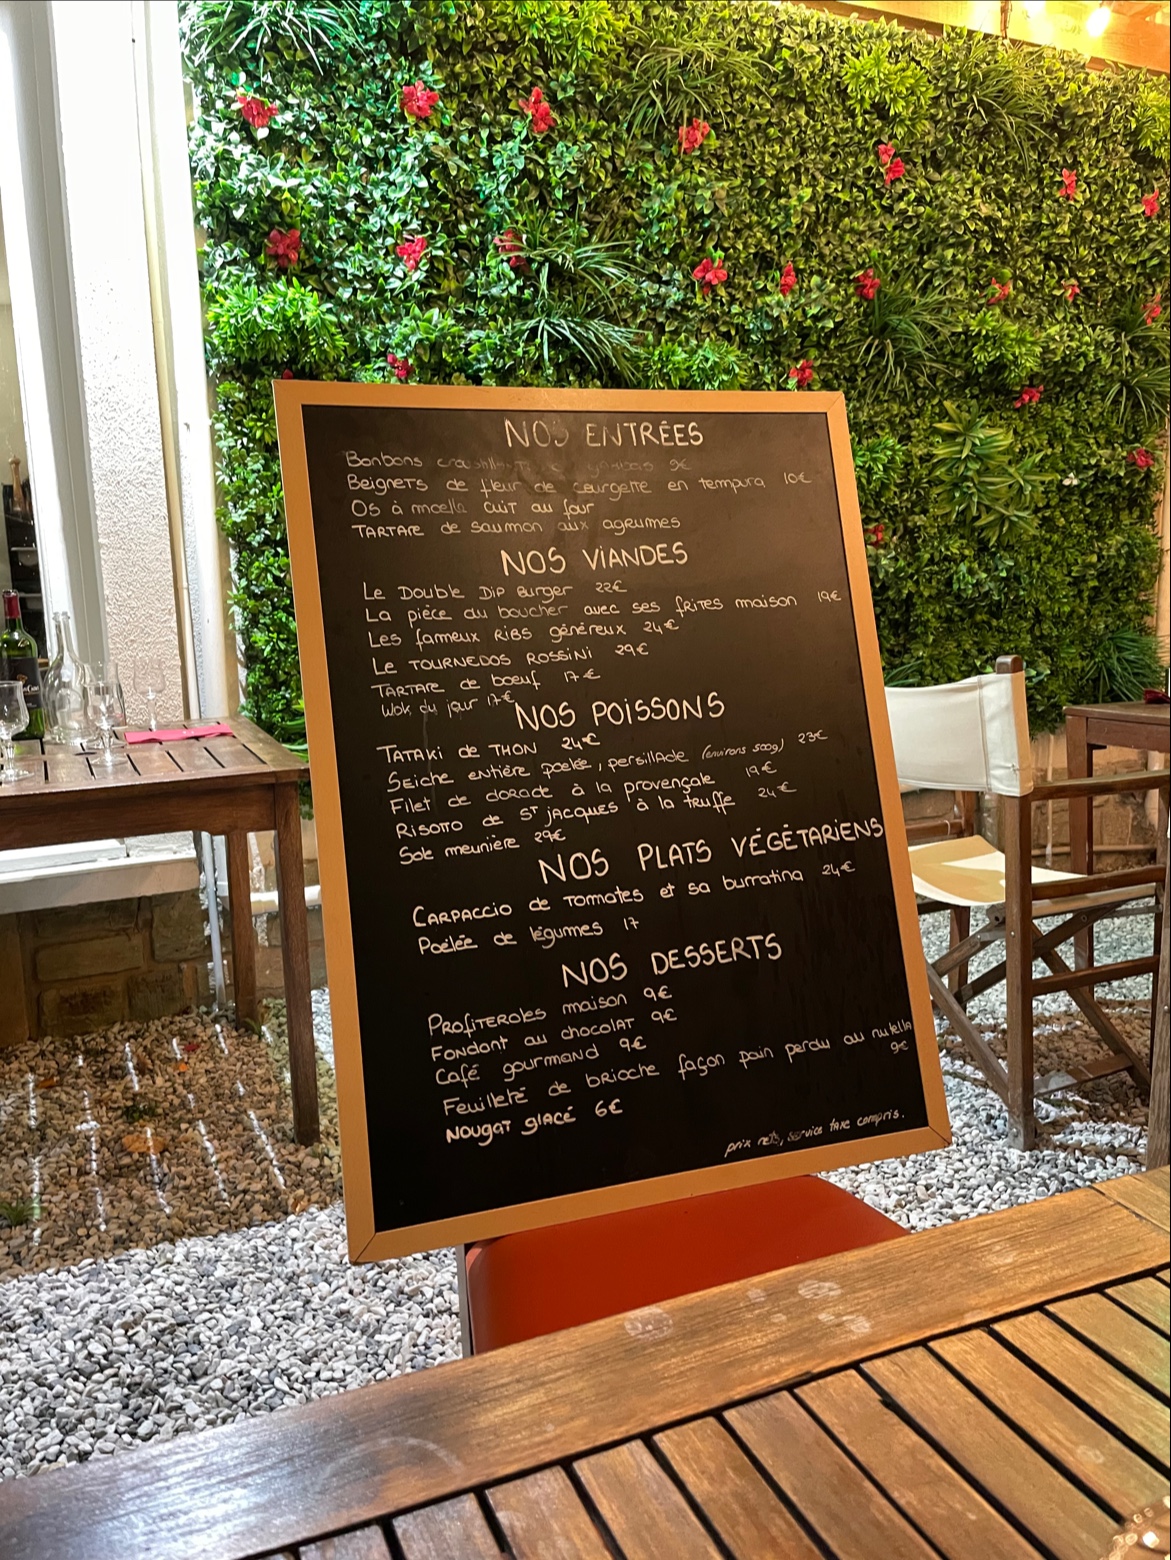 NOS ENTRÉES
Bonbons croustillants gambas 9€
Beignets de fleur de courgette en tempura 10€
Os à moelle cuit au four
TARTARE de saumon aux agrumes
NOS VIANDES
Le Double Dip Burger 22€
La pièce du boucher avec ses frites maison 19€
Les fameux RIBS généreux 24€
Le TOURNEDOS ROSSINI 29€
TARTARE de boeuf 17€
Wok du jour 17€
NOS POISSONS
TATAKI de THON 24€
Seiche entière poelée, persillade (environs 500g) 23€
Filet de dorade à la provençale 19€
Risotto de ST jacques à la truffe 24€
Sole meunière 29€
NOS PLATS VÉGÉTARIENS
CARPACCIO de Tomates et sa burratina 24€
Poêlée de légumes 17
NOS DESSERTS
PROFITEROLES maison 9€
Fondant au chocolat 9€
Café gourmand 9€
Feuilleté de brioche façon pain perdu au nutella
9€
Nougat glacé 6€
prix nets, service taxe compris.